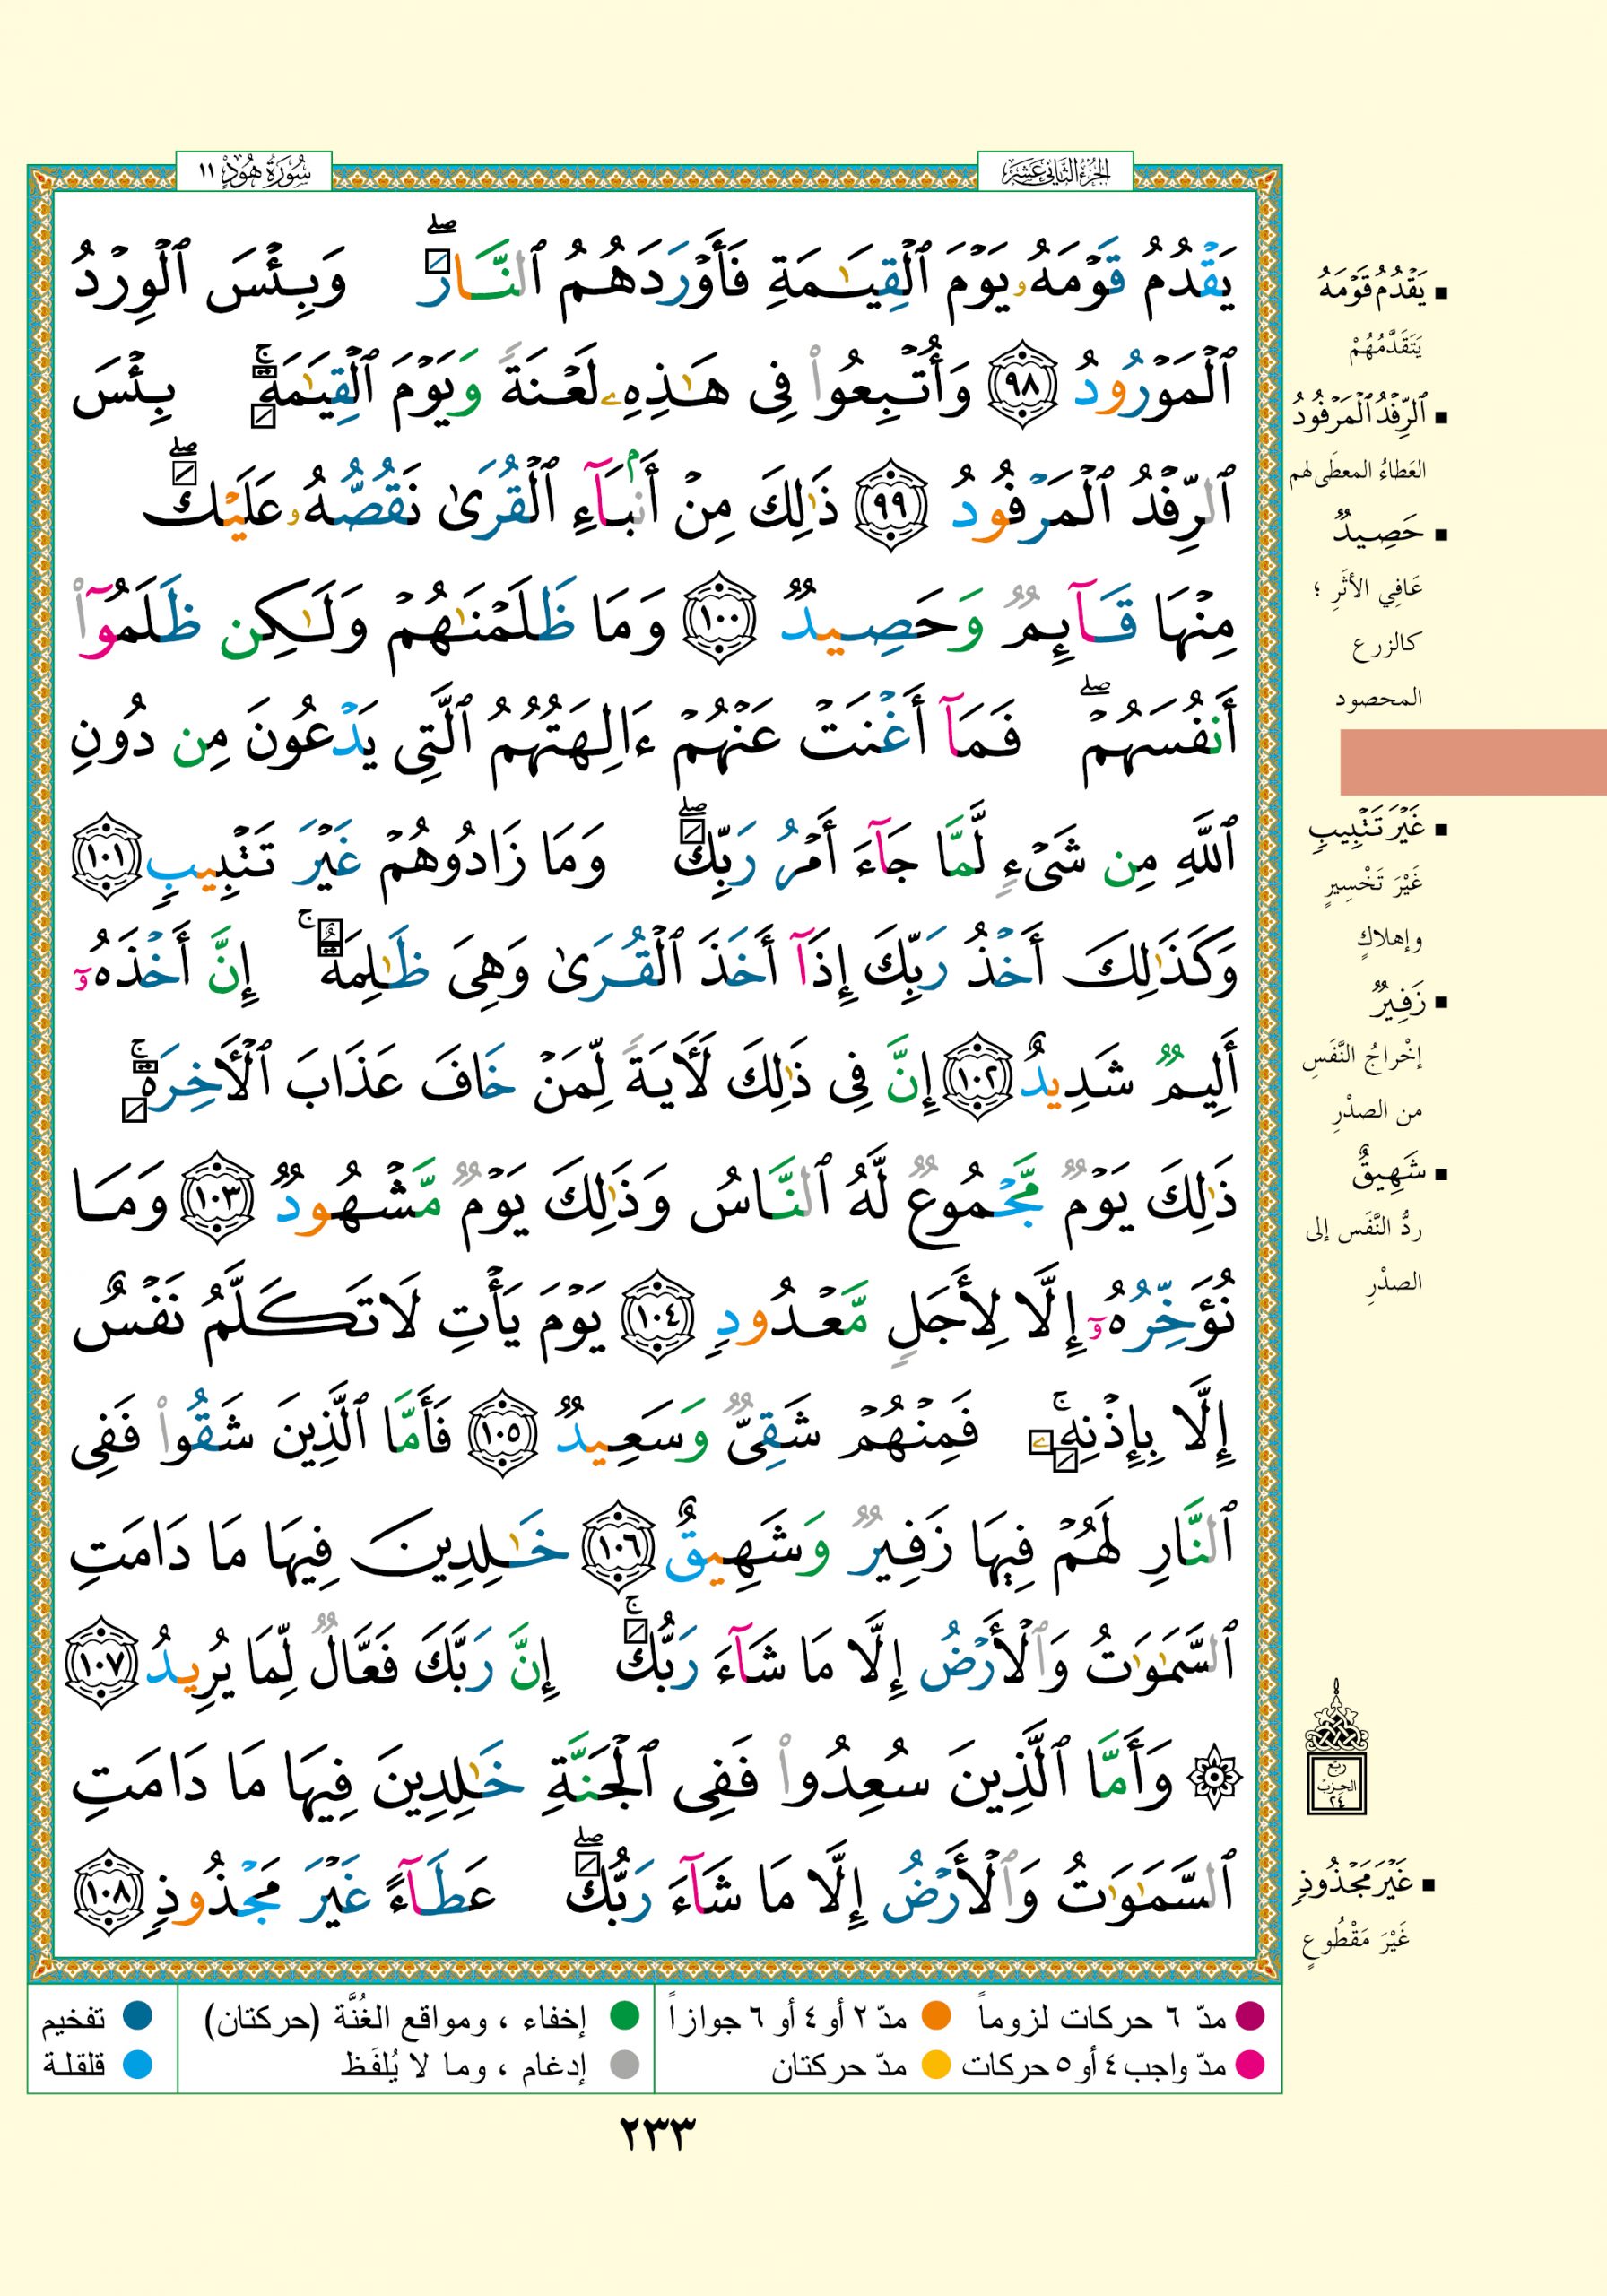 الجزء الثاني عشر
سُورَةُ هُودٍ ١١
يَقْدُمُ قَوْمَهُۥ يَوْمَ ٱلْقِيَٰمَةِ فَأَوْرَدَهُمُ ٱلنَّارَ ۖ وَبِئْسَ ٱلْوِرْدُ
ٱلْمَوْرُودُ ٩٨ وَأُتْبِعُوا۟ فِى هَٰذِهِۦ لَعْنَةً وَيَوْمَ ٱلْقِيَٰمَةِ ۚ بِئْسَ
ٱلرِّفْدُ ٱلْمَرْفُودُ ٩٩ ذَٰلِكَ مِنْ أَنۢبَآءِ ٱلْقُرَىٰ نَقُصُّهُۥ عَلَيْكَ ۖ
مِنْهَا قَآئِمٌ وَحَصِيدٌ ١٠٠ وَمَا ظَلَمْنَٰهُمْ وَلَٰكِن ظَلَمُوٓا۟
أَنفُسَهُمْ ۖ فَمَآ أَغْنَتْ عَنْهُمْ ءَالِهَتُهُمُ ٱلَّتِى يَدْعُونَ مِن دُونِ
ٱللَّهِ مِن شَىْءٍ لَّمَّا جَآءَ أَمْرُ رَبِّكَ ۖ وَمَا زَادُوهُمْ غَيْرَ تَتْبِيبٍ ١٠١
وَكَذَٰلِكَ أَخْذُ رَبِّكَ إِذَآ أَخَذَ ٱلْقُرَىٰ وَهِىَ ظَٰلِمَةٌ ۚ إِنَّ أَخْذَهُۥٓ
أَلِيمٌ شَدِيدٌ ١٠٢ إِنَّ فِى ذَٰلِكَ لَءَايَةً لِّمَنْ خَافَ عَذَابَ ٱلْءَاخِرَةِ ۚ
ذَٰلِكَ يَوْمٌ مَّجْمُوعٌ لَّهُ ٱلنَّاسُ وَذَٰلِكَ يَوْمٌ مَّشْهُودٌ ١٠٣ وَمَا
نُؤَخِّرُهُۥٓ إِلَّا لِأَجَلٍ مَّعْدُودٍ ١٠٤ يَوْمَ يَأْتِ لَا تَكَلَّمُ نَفْسٌ
إِلَّا بِإِذْنِهِۦ ۚ فَمِنْهُمْ شَقِىٌّ وَسَعِيدٌ ١٠٥ فَأَمَّا ٱلَّذِينَ شَقُوا۟ فَفِى
ٱلنَّارِ لَهُمْ فِيهَا زَفِيرٌ وَشَهِيقٌ ١٠٦ خَٰلِدِينَ فِيهَا مَا دَامَتِ
ٱلسَّمَٰوَٰتُ وَٱلْأَرْضُ إِلَّا مَا شَآءَ رَبُّكَ ۚ إِنَّ رَبَّكَ فَعَّالٌ لِّمَا يُرِيدُ ١٠٧
۞ وَأَمَّا ٱلَّذِينَ سُعِدُوا۟ فَفِى ٱلْجَنَّةِ خَٰلِدِينَ فِيهَا مَا دَامَتِ
ٱلسَّمَٰوَٰتُ وَٱلْأَرْضُ إِلَّا مَا شَآءَ رَبُّكَ ۖ عَطَآءً غَيْرَ مَجْذُوذٍ ١٠٨
يَقْدُمُ قَوْمَهُ
يَتَقَدَّمُهُمْ
ٱلرِّفْدُ ٱلْمَرْفُودُ
العَطاءُ المعطَى لهم
حَصِيدٌ
عَافِي الأثَرِ ؛
كالزرع
المحصود
غَيْرَ تَتْبِيبٍ
غَيْرَ تَخْسِيرٍ
وإهلاكٍ
زَفِيرٌ
إخْراجُ النَّفَسِ
من الصدْرِ
شَهِيقٌ
ردُّ النَّفَس إلى
الصدْرِ
ربع
الحزب
٢٤
غَيْرَ مَجْذُوذٍ
غَيْرَ مَقْطُوعٍ
مدّ ٦ حركات لزوماً
مدّ ٢ أو ٤ أو ٦ جوازاً
إخفاء ، ومواقع الغُنَّة (حركتان)
تفخيم
مدّ واجب ٤ أو ٥ حركات
مدّ حركتان
إدغام ، وما لا يُلفَظ
قلقلة
٢٣٣